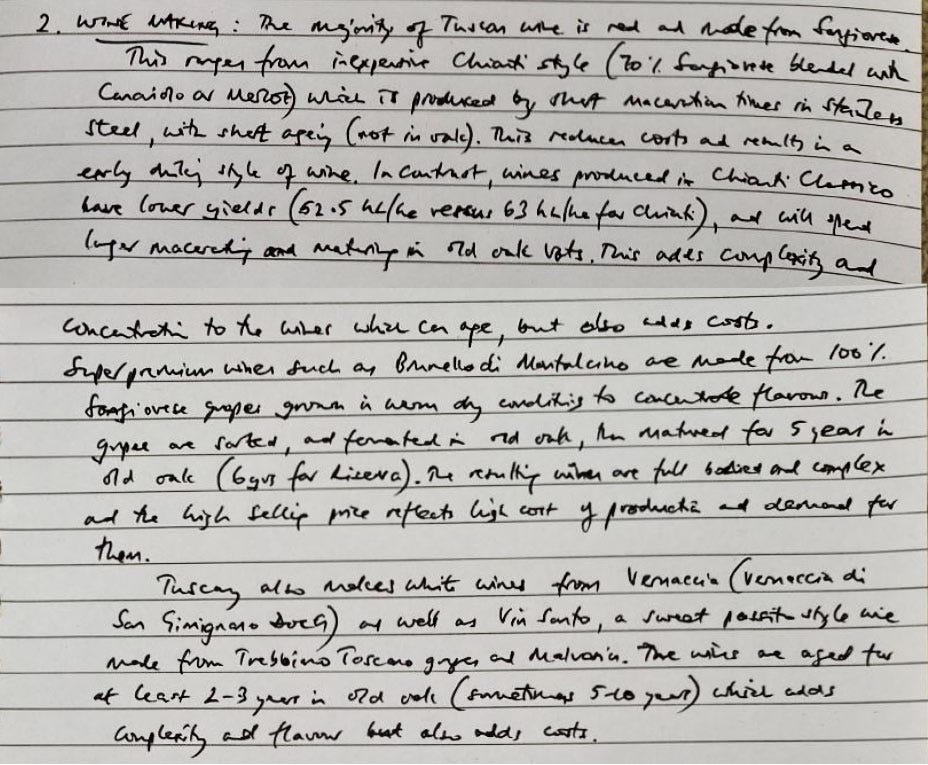 2. WINE MAKING : The majority of Tuscan wine is red and made from Sangiovese.
This ranges from inexpensive Chianti style (70% Sangiovese blended with
Canaiolo or Merlot) which is produced by short maceration times in stainless
steel, with short ageing (not in oak). This reduces costs and results in a
early drinking style of wine. In contrast, wines produced in Chianti Classico
have lower yields (52.5 hL/ha versus 63 hL/ha for Chianti), and will spend
longer macerating and maturing in old oak vats. This adds complexity and
concentration to the wines which can age, but also adds costs.
Super premium wines such as Brunello di Montalcino are made from 100%
Sangiovese grapes grown in warm dry conditions to concentrate flavour. The
grapes are sorted, and fermented in old oak, then matured for 5 years in
old oak (6yrs for Riserva). The resulting wines are full bodied and complex
and the high selling price reflects high cost of production and demand for
them.
Tuscany also makes white wines from Vernaccia (Vernaccia di
San Gimignano DOCG) as well as Vin Santo, a sweet passito style wine
made from Trebbiano Toscano grapes and Malvasia. The wines are aged for
at least 2-3 years in old oak (sometimes 5-10 years) which adds
complexity and flavour but also adds costs.